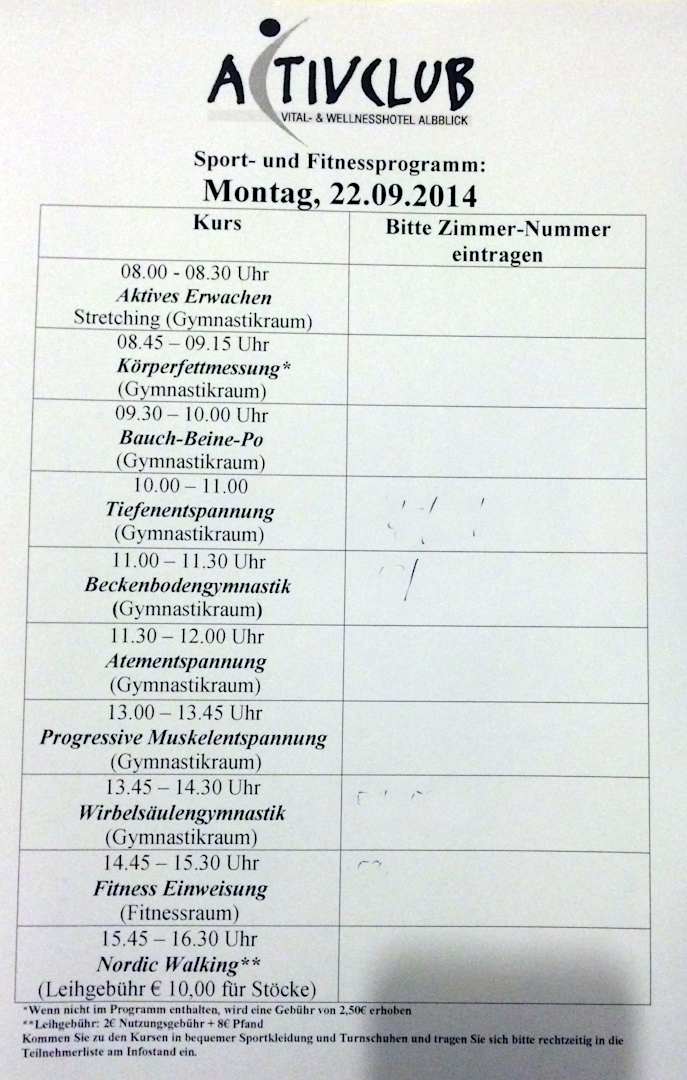 ACTIVCLUB
VITAL- & WELLNESSHOTEL ALBBLICK
Sport- und Fitnessprogramm:
Montag, 22.09.2014
Kurs
Bitte Zimmer-Nummer
eintragen
08.00 - 08.30 Uhr
Aktives Erwachen
Stretching (Gymnastikraum)
08.45 – 09.15 Uhr
Körperfettmessung*
(Gymnastikraum)
09.30 – 10.00 Uhr
Bauch-Beine-Po
(Gymnastikraum)
10.00 – 11.00
Tiefenentspannung
(Gymnastikraum)
11.00 – 11.30 Uhr
Beckenbodengymnastik
(Gymnastikraum)
11.30 – 12.00 Uhr
Atementspannung
(Gymnastikraum)
13.00 – 13.45 Uhr
Progressive Muskelentspannung
(Gymnastikraum)
13.45 – 14.30 Uhr
Wirbelsäulengymnastik
(Gymnastikraum)
14.45 – 15.30 Uhr
Fitness Einweisung
(Fitnessraum)
15.45 – 16.30 Uhr
Nordic Walking**
(Leihgebühr € 10,00 für Stöcke)
*Wenn nicht im Programm enthalten, wird eine Gebühr von 2,50€ erhoben
**Leihgebühr: 2€ Nutzungsgebühr + 8€ Pfand
Kommen Sie zu den Kursen in bequemer Sportkleidung und Turnschuhen und tragen Sie sich bitte rechtzeitig in die
Teilnehmerliste am Infostand ein.